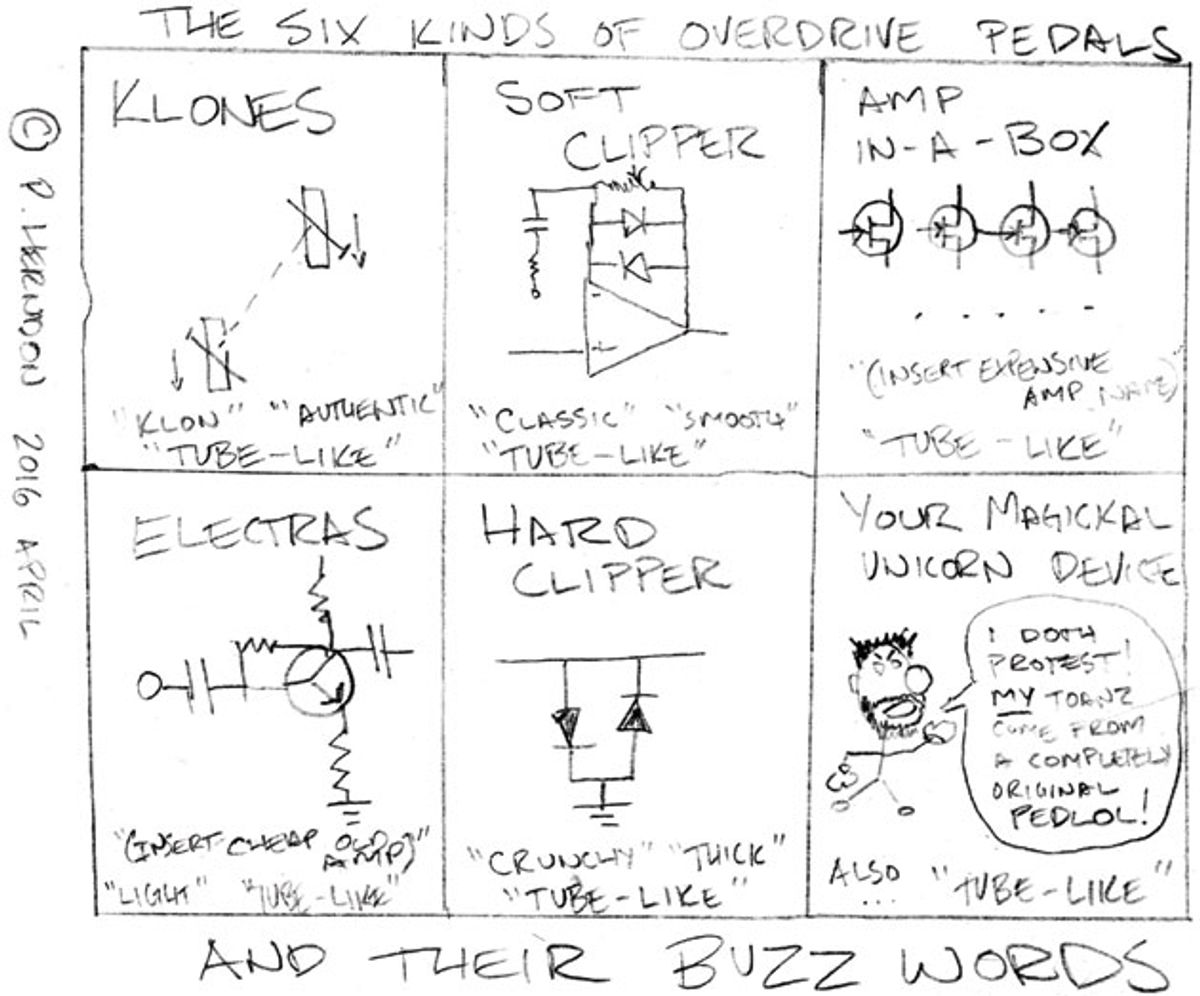 THE SIX KINDS OF OVERDRIVE PEDALS
© P. HERNDON 2016 APRIL
KLONES
"KLON" "AUTHENTIC"
"TUBE-LIKE"
SOFT
CLIPPER
-
+
"CLASSIC" "SMOOTH"
"TUBE-LIKE"
AMP
IN-A-BOX
. . . . .
"(INSERT EXPENSIVE
AMP NAME)"
"TUBE-LIKE"
ELECTRAS
"(INSERT CHEAP OLD
AMP)"
"LIGHT" "TUBE-LIKE"
HARD
CLIPPER
"CRUNCHY" "THICK"
"TUBE-LIKE"
YOUR MAGICKAL
UNICORN DEVICE
I DOTH
PROTEST!
MY TOANZ
COME FROM
A COMPLETELY
ORIGINAL
PEDLOL!
ALSO "TUBE-LIKE"
...
AND THEIR BUZZ WORDS